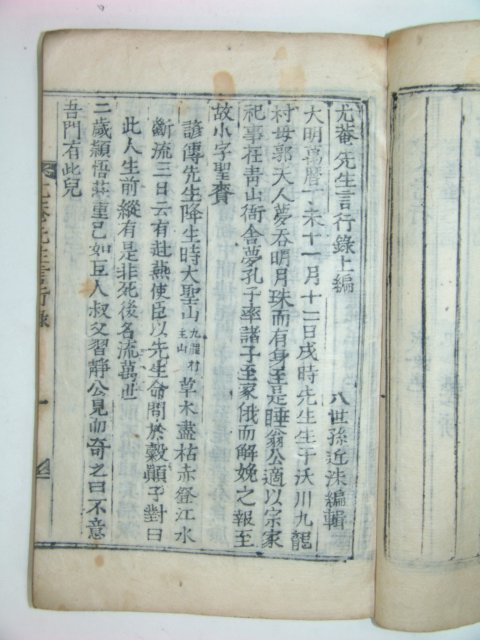 尤菴先生言行錄上編
八世孫近洙編輯
大明萬曆丁未十一月十二日戌時先生生于沃川九龍
村母郭夫人夢呑明月珠而有身至是睡翁公適以宗家
祀事在靑山衙舍夢孔子率諸子至家俄而解娩之報至
故小字聖賚
諺傳先生降生時大聖山九龍村主山草木盡枯赤登江水
斷流三日云有赴燕使臣以先生命問於穀顚子對曰
此人生前縱有是非死後名流萬世
二歲穎悟莊重已如巨人叔父習靜公見而奇之曰不意
吾門有此兒
尤菴先生言行錄 一